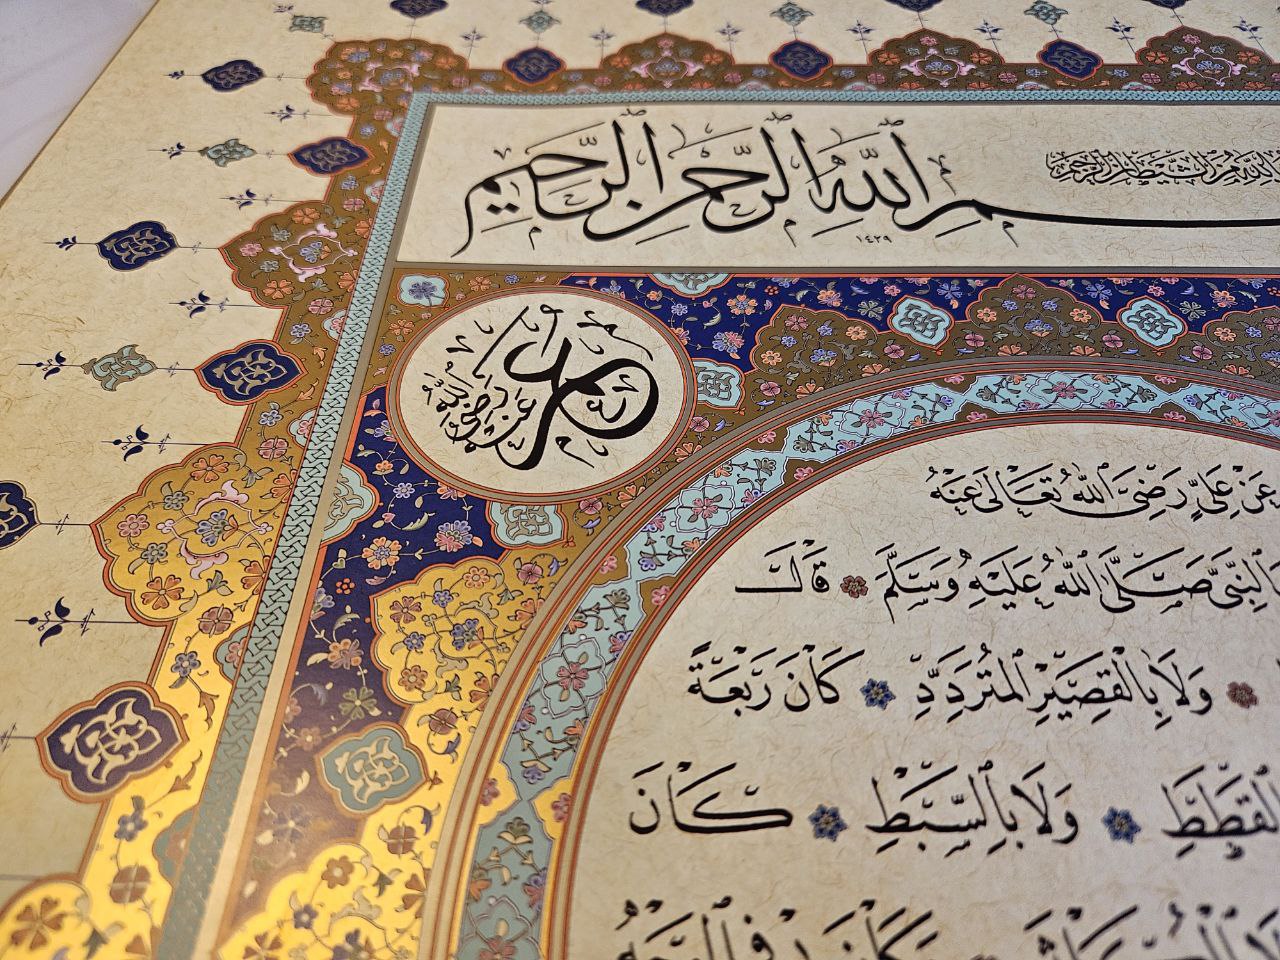 بِسْمِ اللَّهِ الرَّحْمٰنِ الرَّحِيمِ
١٤٢٩
عمر رضي الله عنه
عَنْ عَلِيٍّ رَضِيَ اللَّهُ تَعَالَى عَنْهُ
النَّبِيَّ صَلَّى اللَّهُ عَلَيْهِ وَسَلَّمَ قَالَ
وَلَا بِالْقَصِيرِ الْمُتَرَدِّدِ كَانَ رَبْعَةً
الْقَطَطِ وَلَا بِالسَّبِطِ كَانَ